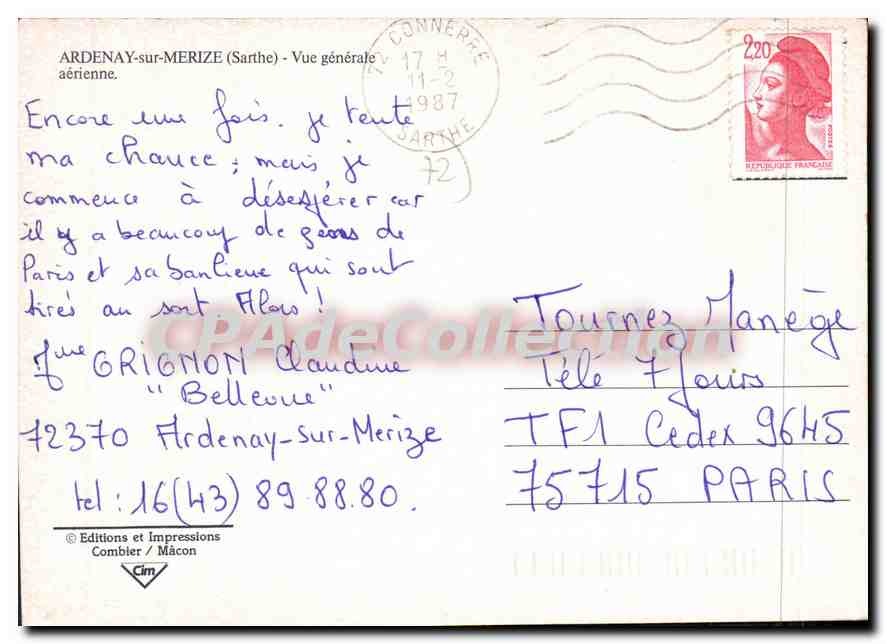 ARDENAY-sur-MERIZE (Sarthe) - Vue générale
aérienne.
72 CONNERRE
17 H
11-2
1987
SARTHE
72
2,20
POSTES
REPUBLIQUE FRANÇAISE
Encore une fois. je tente
ma chance ; mais je
commence à désespérer car
il y a beaucoup de gens de
Paris et sa banlieue qui sont
tirés au sort. Alors !
Mme GRIGNON Claudine
"Bellevue"
72370 Ardenay-sur-Merize
tel : 16 (43) 89.88.80.
Tournez Manège
Télé 7 Jours
TF1 Cedex 9645
75715 PARIS
© Editions et Impressions
Combier / Mâcon
Cim
CPAdeCollection